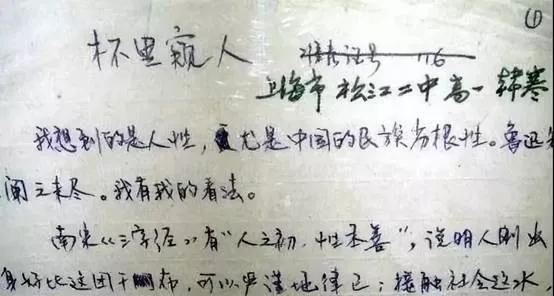 ①
杯里窥人 准考证号 116
上海市松江二中高一 韩寒
我想到的是人性，尤是中国的民族劣根性。鲁迅
阐之未尽。我有我的看法。
南宋《三字经》有"人之初，性本善"，说明人刚出
身好比这团干布，可以严谨地律己；接触社会这水，